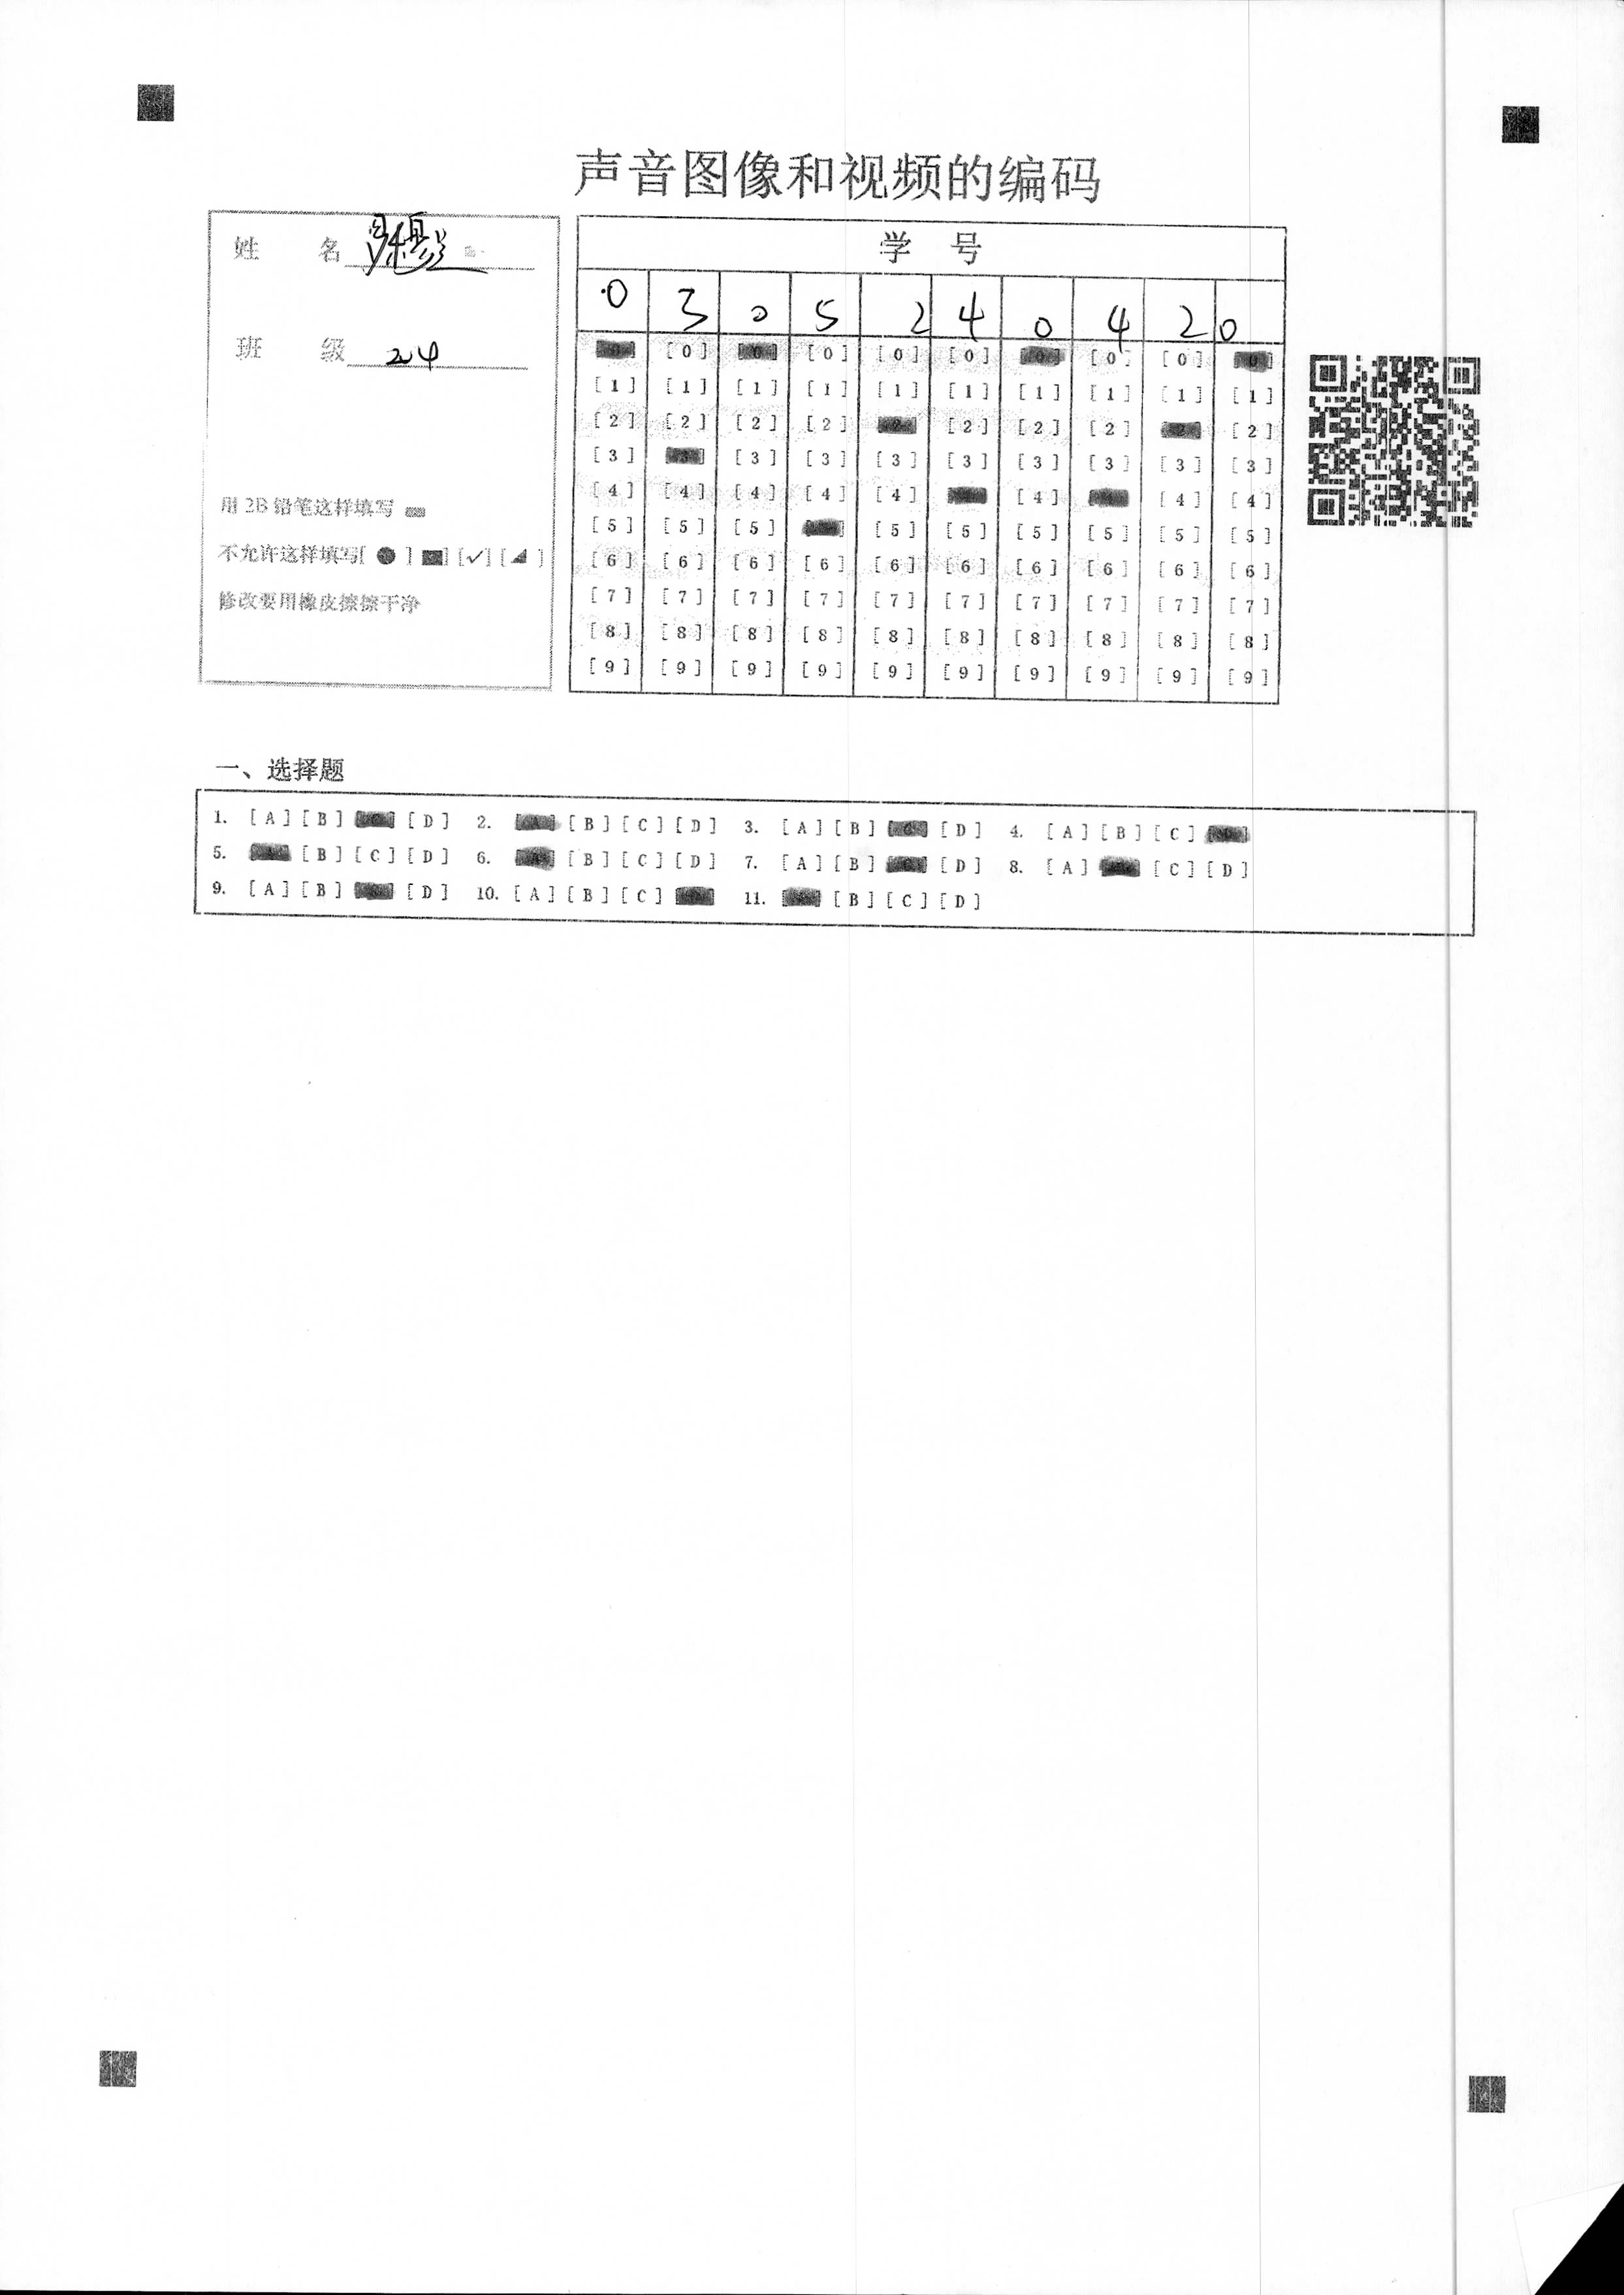 声音图像和视频的编码
姓 名
班 级 204
用 2B 铅笔这样填写
不允许这样填写[ ● ] ■] [✓] [◢ ]
修改要用橡皮擦擦干净
学 号
0 3 0 5 2 4 0 4 2 0
[0] [0] [0] [0] [0] [0] [0]
[1] [1] [1] [1] [1] [1] [1] [1] [1] [1]
[2] [2] [2] [2] [2] [2] [2] [2]
[3] [3] [3] [3] [3] [3] [3] [3] [3]
[4] [4] [4] [4] [4] [4] [4] [4]
[5] [5] [5] [5] [5] [5] [5] [5] [5]
[6] [6] [6] [6] [6] [6] [6] [6] [6] [6]
[7] [7] [7] [7] [7] [7] [7] [7] [7] [7]
[8] [8] [8] [8] [8] [8] [8] [8] [8] [8]
[9] [9] [9] [9] [9] [9] [9] [9] [9] [9]
一、选择题
1. [A] [B] [D] 2. [B] [C] [D] 3. [A] [B] [D] 4. [A] [B] [C]
5. [B] [C] [D] 6. [B] [C] [D] 7. [A] [B] [D] 8. [A] [C] [D]
9. [A] [B] [D] 10. [A] [B] [C] 11. [B] [C] [D]